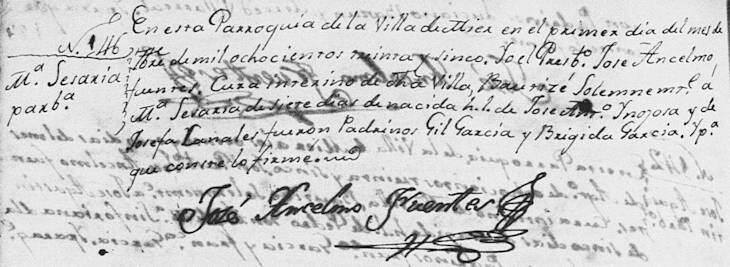 N. 146
Mª Sesaria
parbª
En esta Parroquia de la Villa de Mier en el primer dia del mes de
bre de mil ochocientos treinta y sinco. Yo el Presbº. José Ancelmo
fuentes, Cura interino de dha Villa, Bautizé Solemnemte. á
Mª. Sesaria de siete dias de nacida h. l. de Jose Anto. Ynojosa y de
Josefa Canales fueron Padrinos Gil Garcia y Brigida Garcia. Y pª.
que conste lo firmé.
José Ancelmo Fuentes